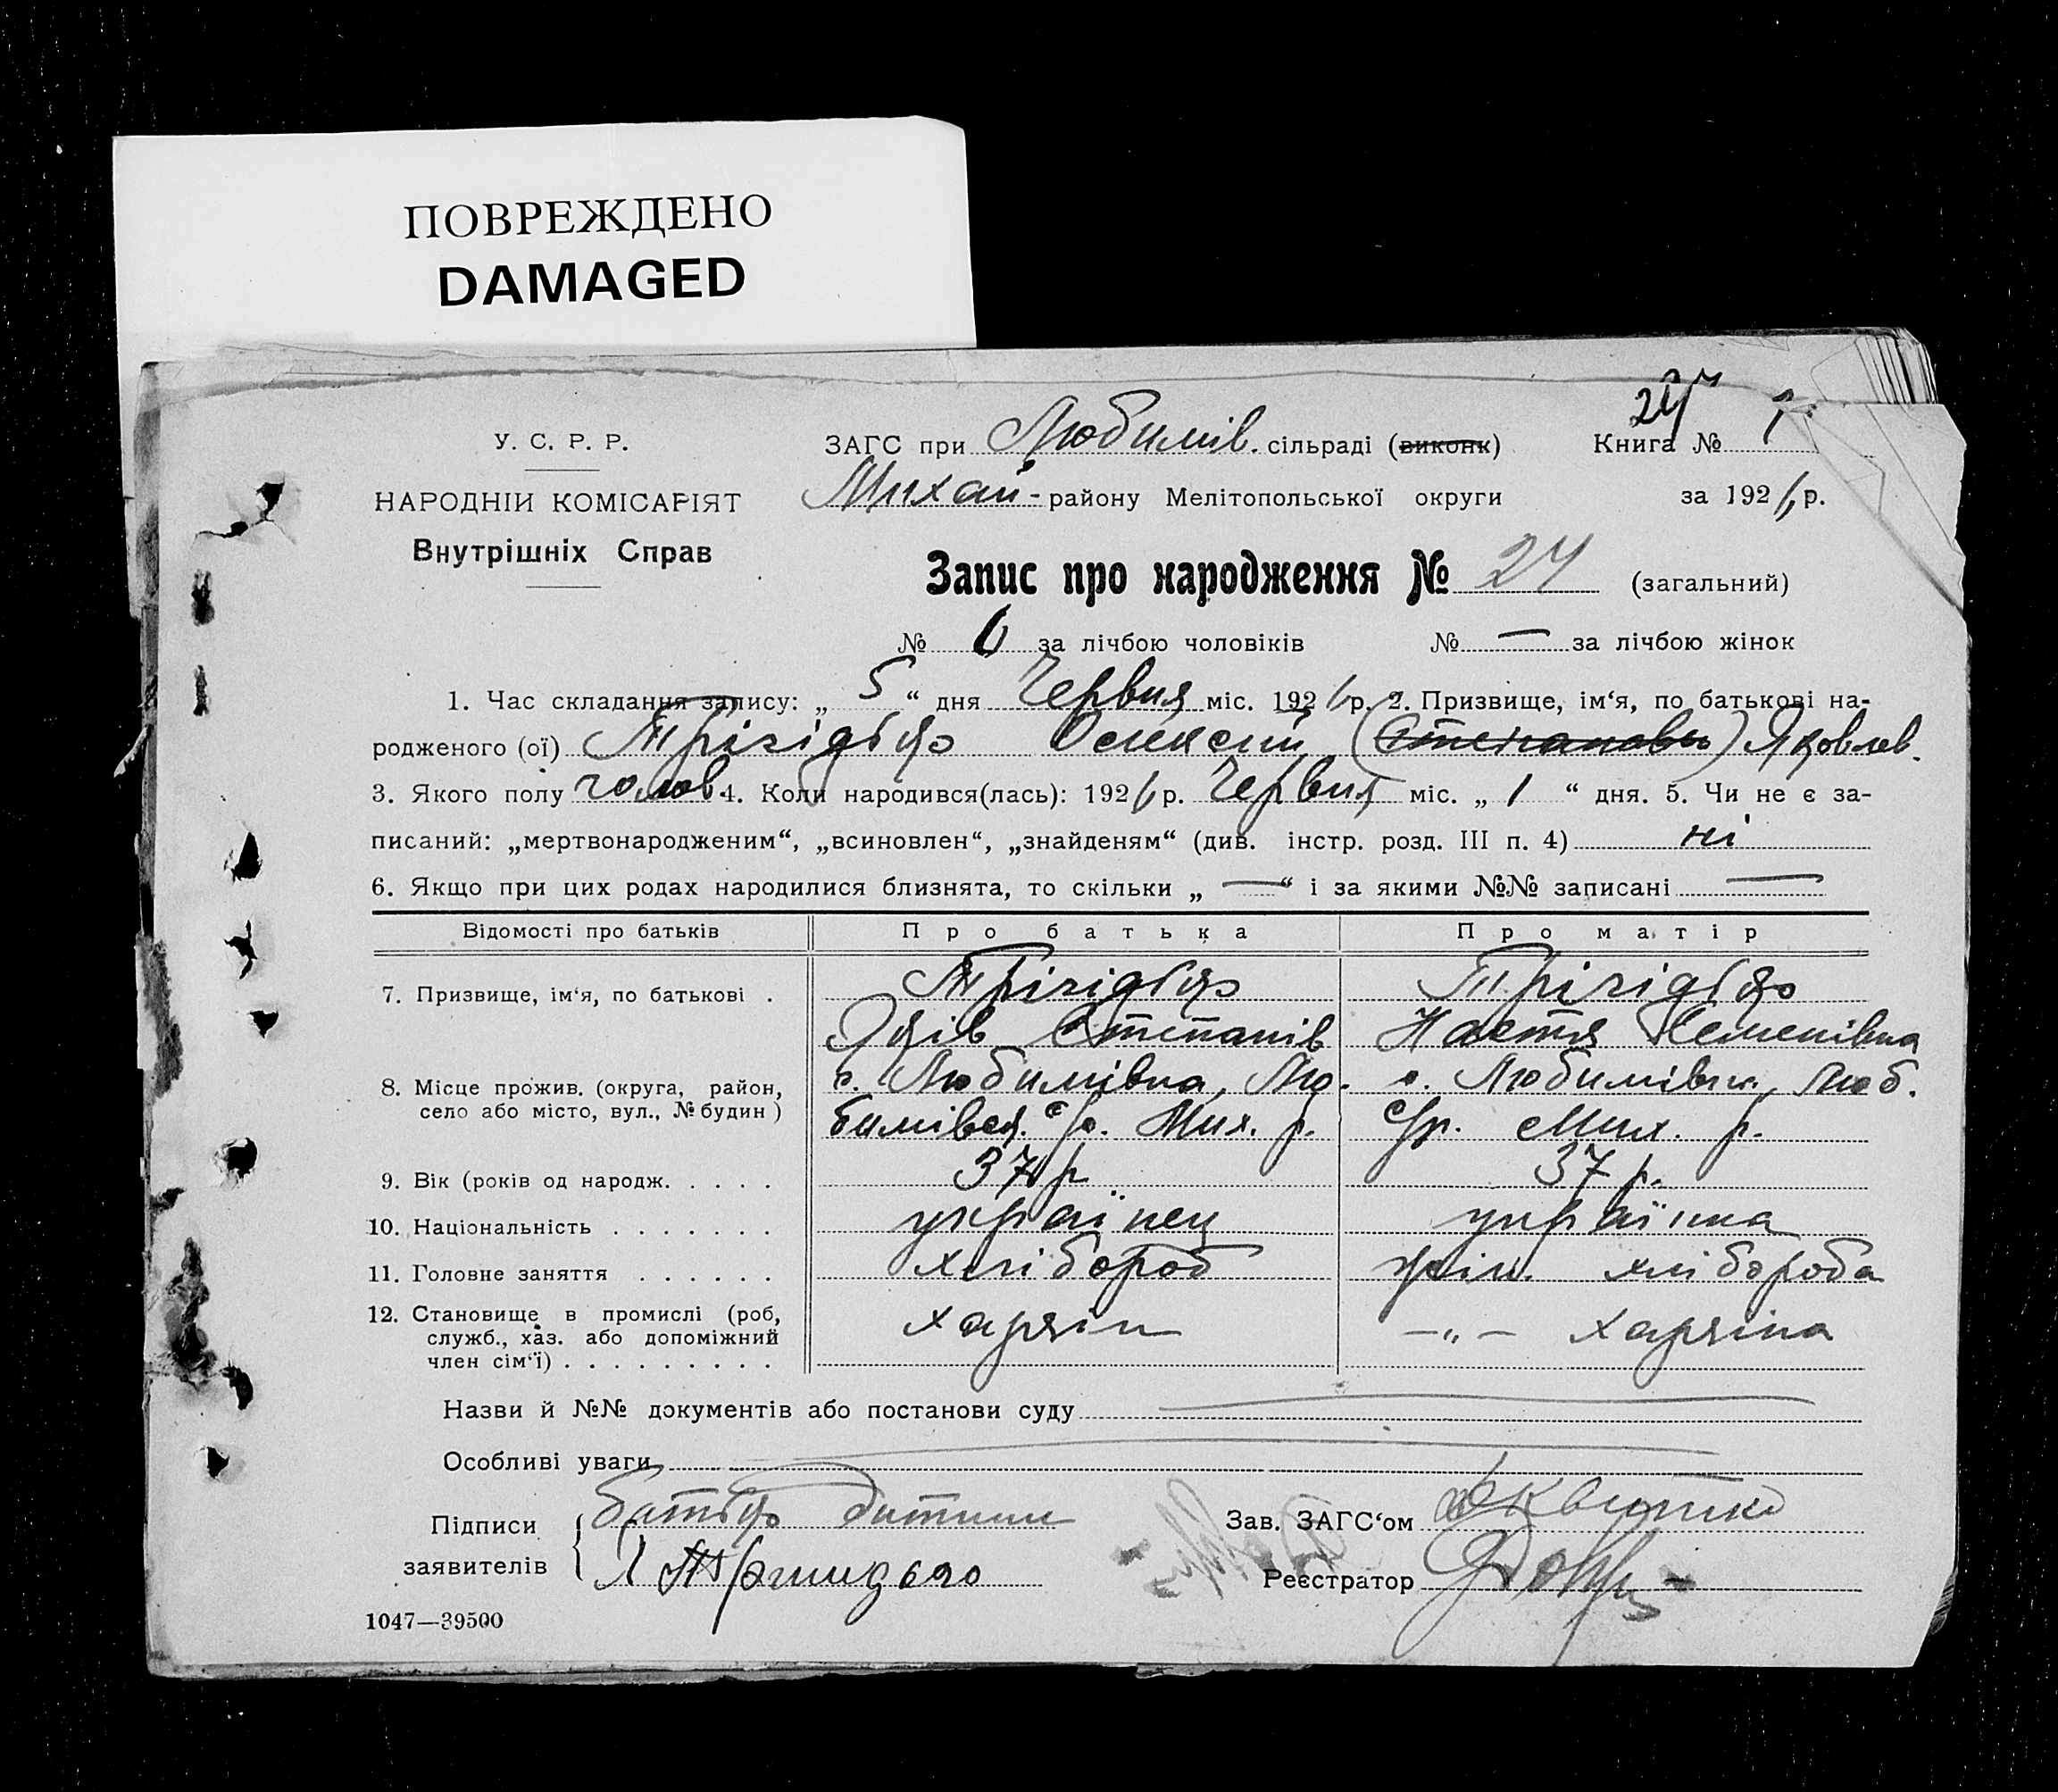 ПОВРЕЖДЕНО
DAMAGED
24
У. С. Р. Р.
ЗАГС при Любимів. сільраді (виконк) Книга № 1
НАРОДНІЙ КОМІСАРІЯТ
Михай- району Мелітопольської округи за 1926 р.
Внутрішніх Справ
Запис про народження № 24 (загальний)
№ 6 за лічбою чоловіків № — за лічбою жінок
1. Час складання запису: „ 5 “ дня Червня міс. 1926 р. 2. Призвище, ім‘я, по батькові на-
родженого (ої) Олексій (Степанович) Яковлев.
3. Якого полу чолов. 4. Коли народився(лась): 1926 р. Червня міс. „ 1 “ дня. 5. Чи не є за-
писаний: „мертвонародженим“, „всиновлен“, „знайденям“ (див. інстр. розд. III п. 4) ні
6. Якщо при цих родах народилися близнята, то скільки „ — “ і за якими №№ записані —
Відомості про батьків Про батька Про матір
7. Призвище, ім‘я, по батькові .
Яків Степанів Настя Семенівна
8. Місце прожив. (округа, район, село або місто, вул., № будин)
с. Любимівка, Лю- с. Любимівка, Люб.
бимівск. с/р. Мих. р. с/р. Мих. р.
9. Вік (років од народж. . . . . 37 р 37 р.
10. Національність . . . . . . . українец українка
11. Головне заняття . . . . . . хлібороб жін. хлібороба
12. Становище в промислі (роб, служб., хаз. або допоміжний член сім‘ї) . . . . . . . . . хазяін —„— хазяіна
Назви й №№ документів або постанови суду
Особливі уваги
Підписи заявителів батько дитини
Зав. ЗАГС‘ом
Реєстратор
1047—39500